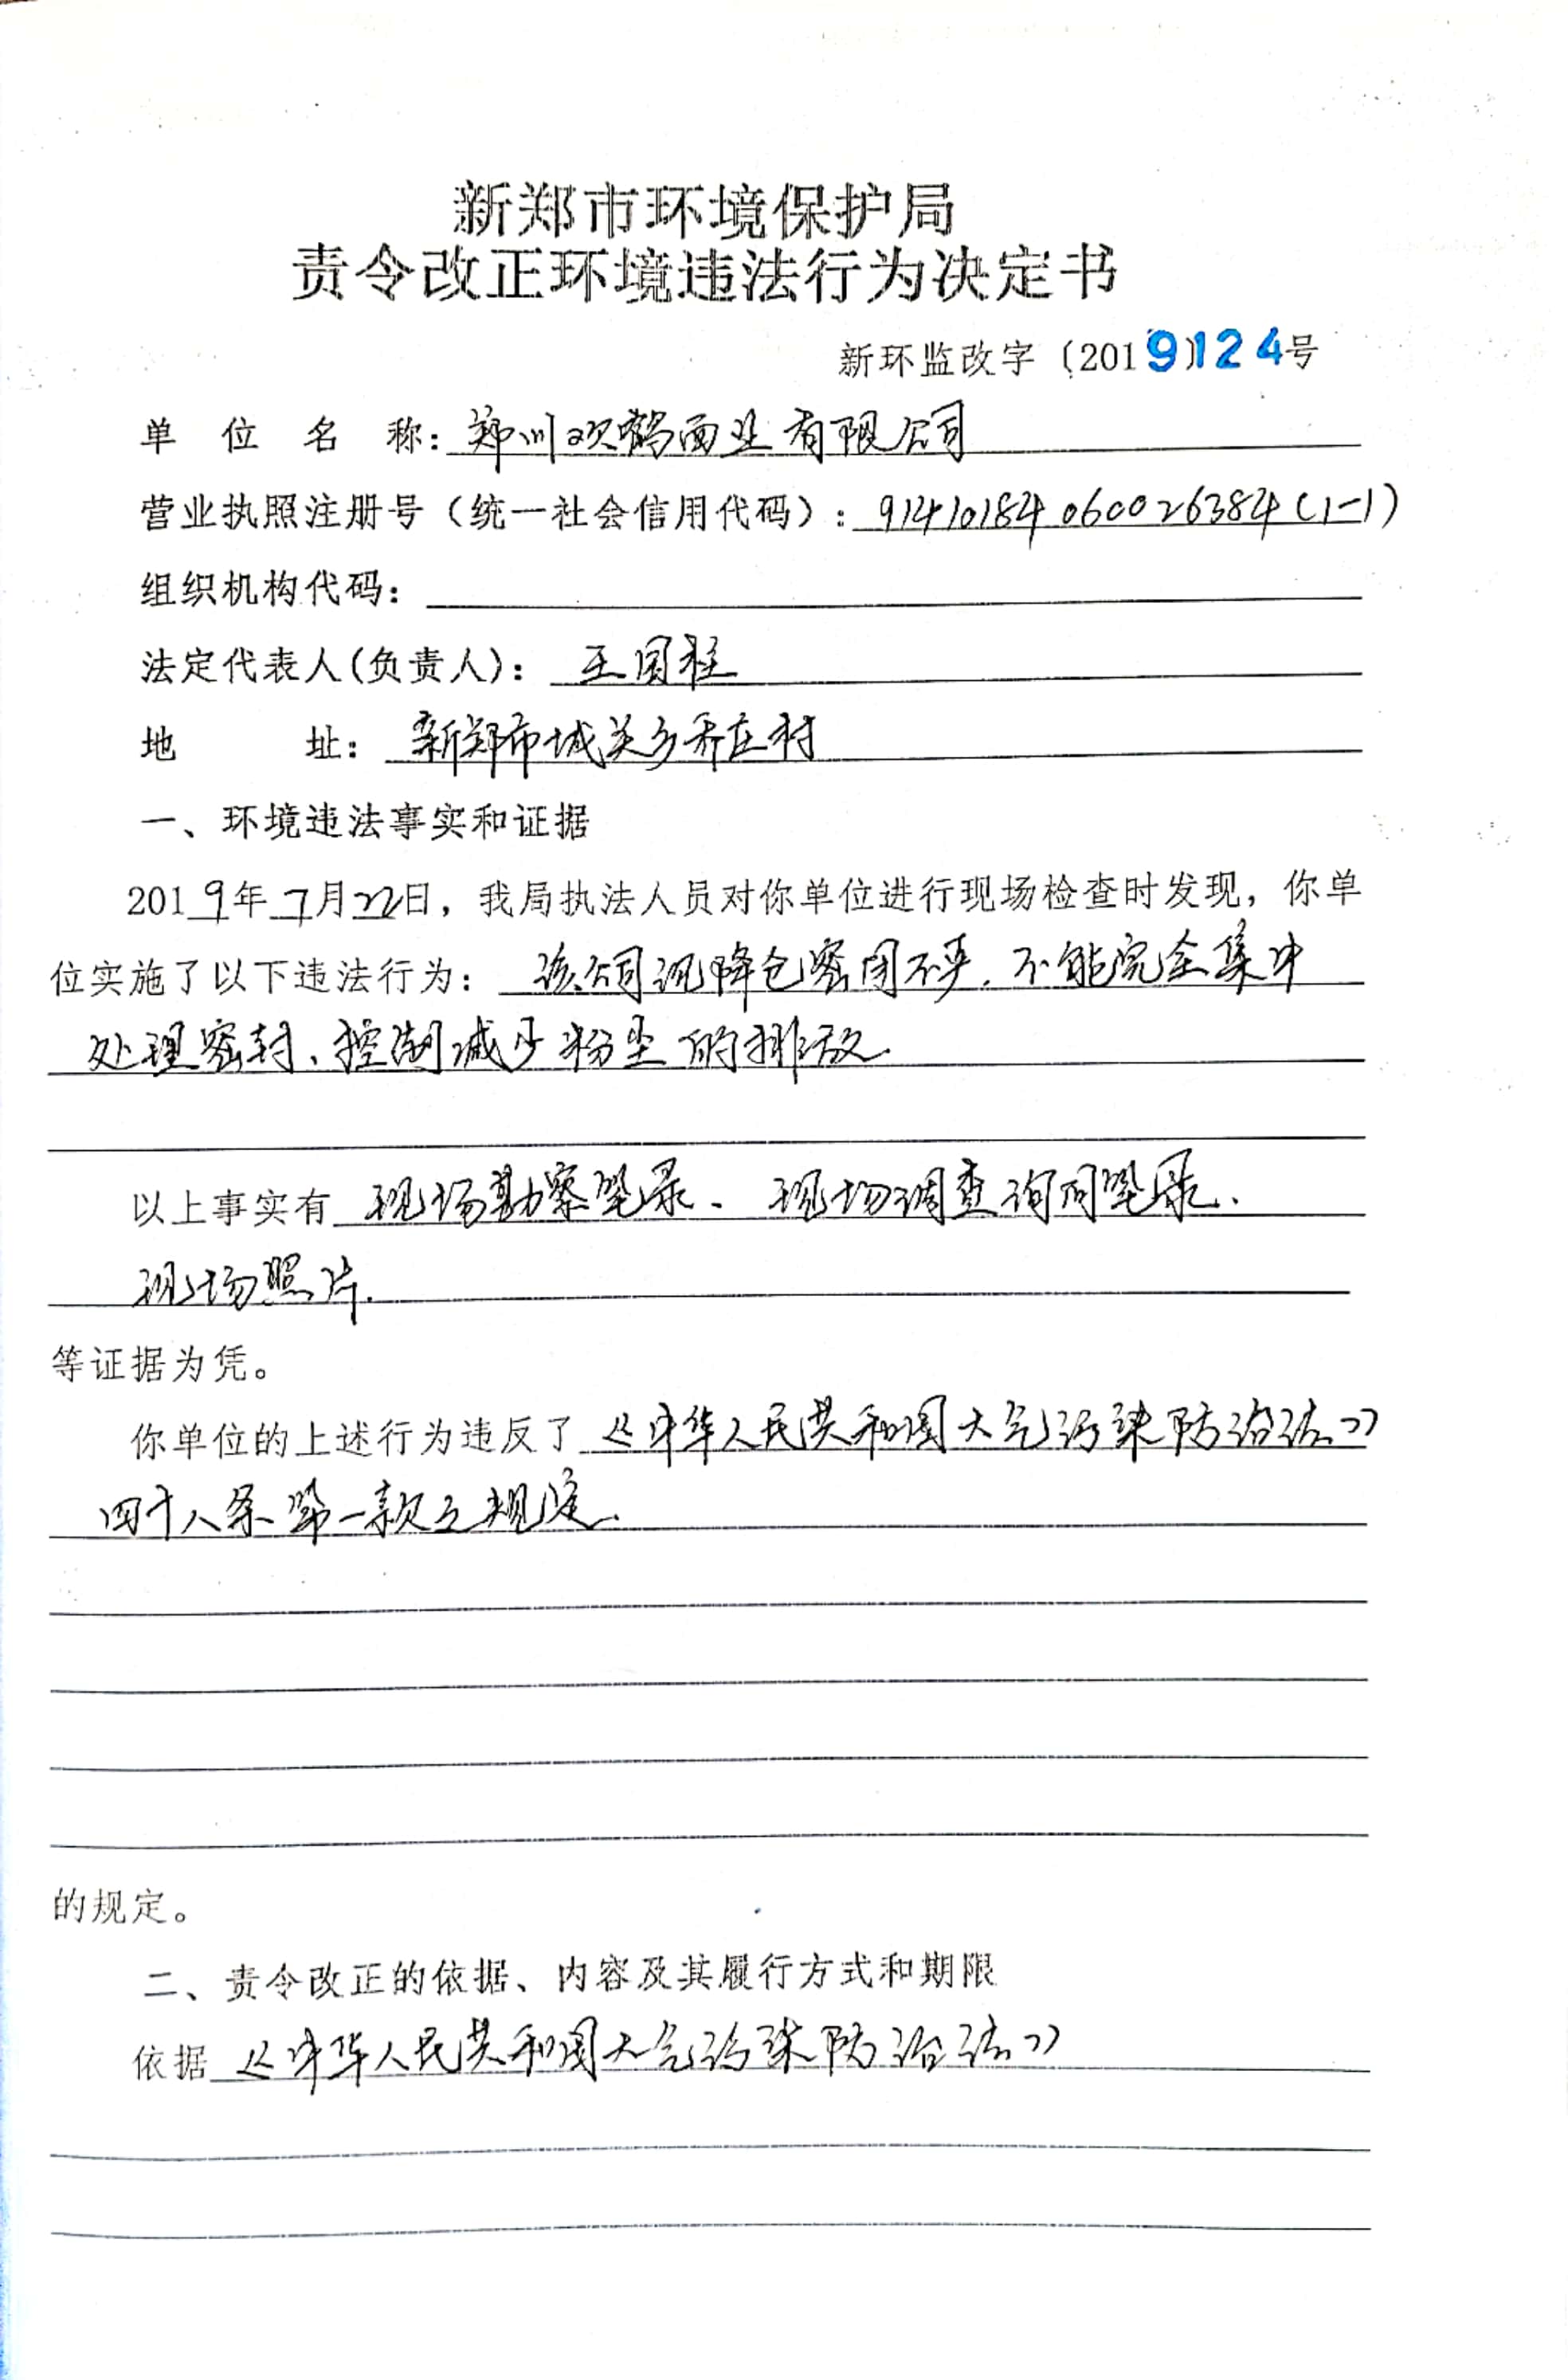 新郑市环境保护局
责令改正环境违法行为决定书
新环监改字〔2019〕124号
单位名称：郑州双鹤面业有限公司
营业执照注册号（统一社会信用代码）：91410184060026384（1-1）
组织机构代码：
法定代表人(负责人)：王国柱
地址：新郑市城关乡乔庄村
一、环境违法事实和证据
2019年7月22日，我局执法人员对你单位进行现场检查时发现，你单
位实施了以下违法行为：该公司沉降仓密闭不严.不能完全集中
处理密封、控制减少粉尘的排放.
以上事实有现场勘察笔录、现场调查询问笔录、
现场照片.
等证据为凭。
你单位的上述行为违反了《中华人民共和国大气污染防治法》
四十八条第一款之规定.
的规定。
二、责令改正的依据、内容及其履行方式和期限
依据《中华人民共和国大气污染防治法》